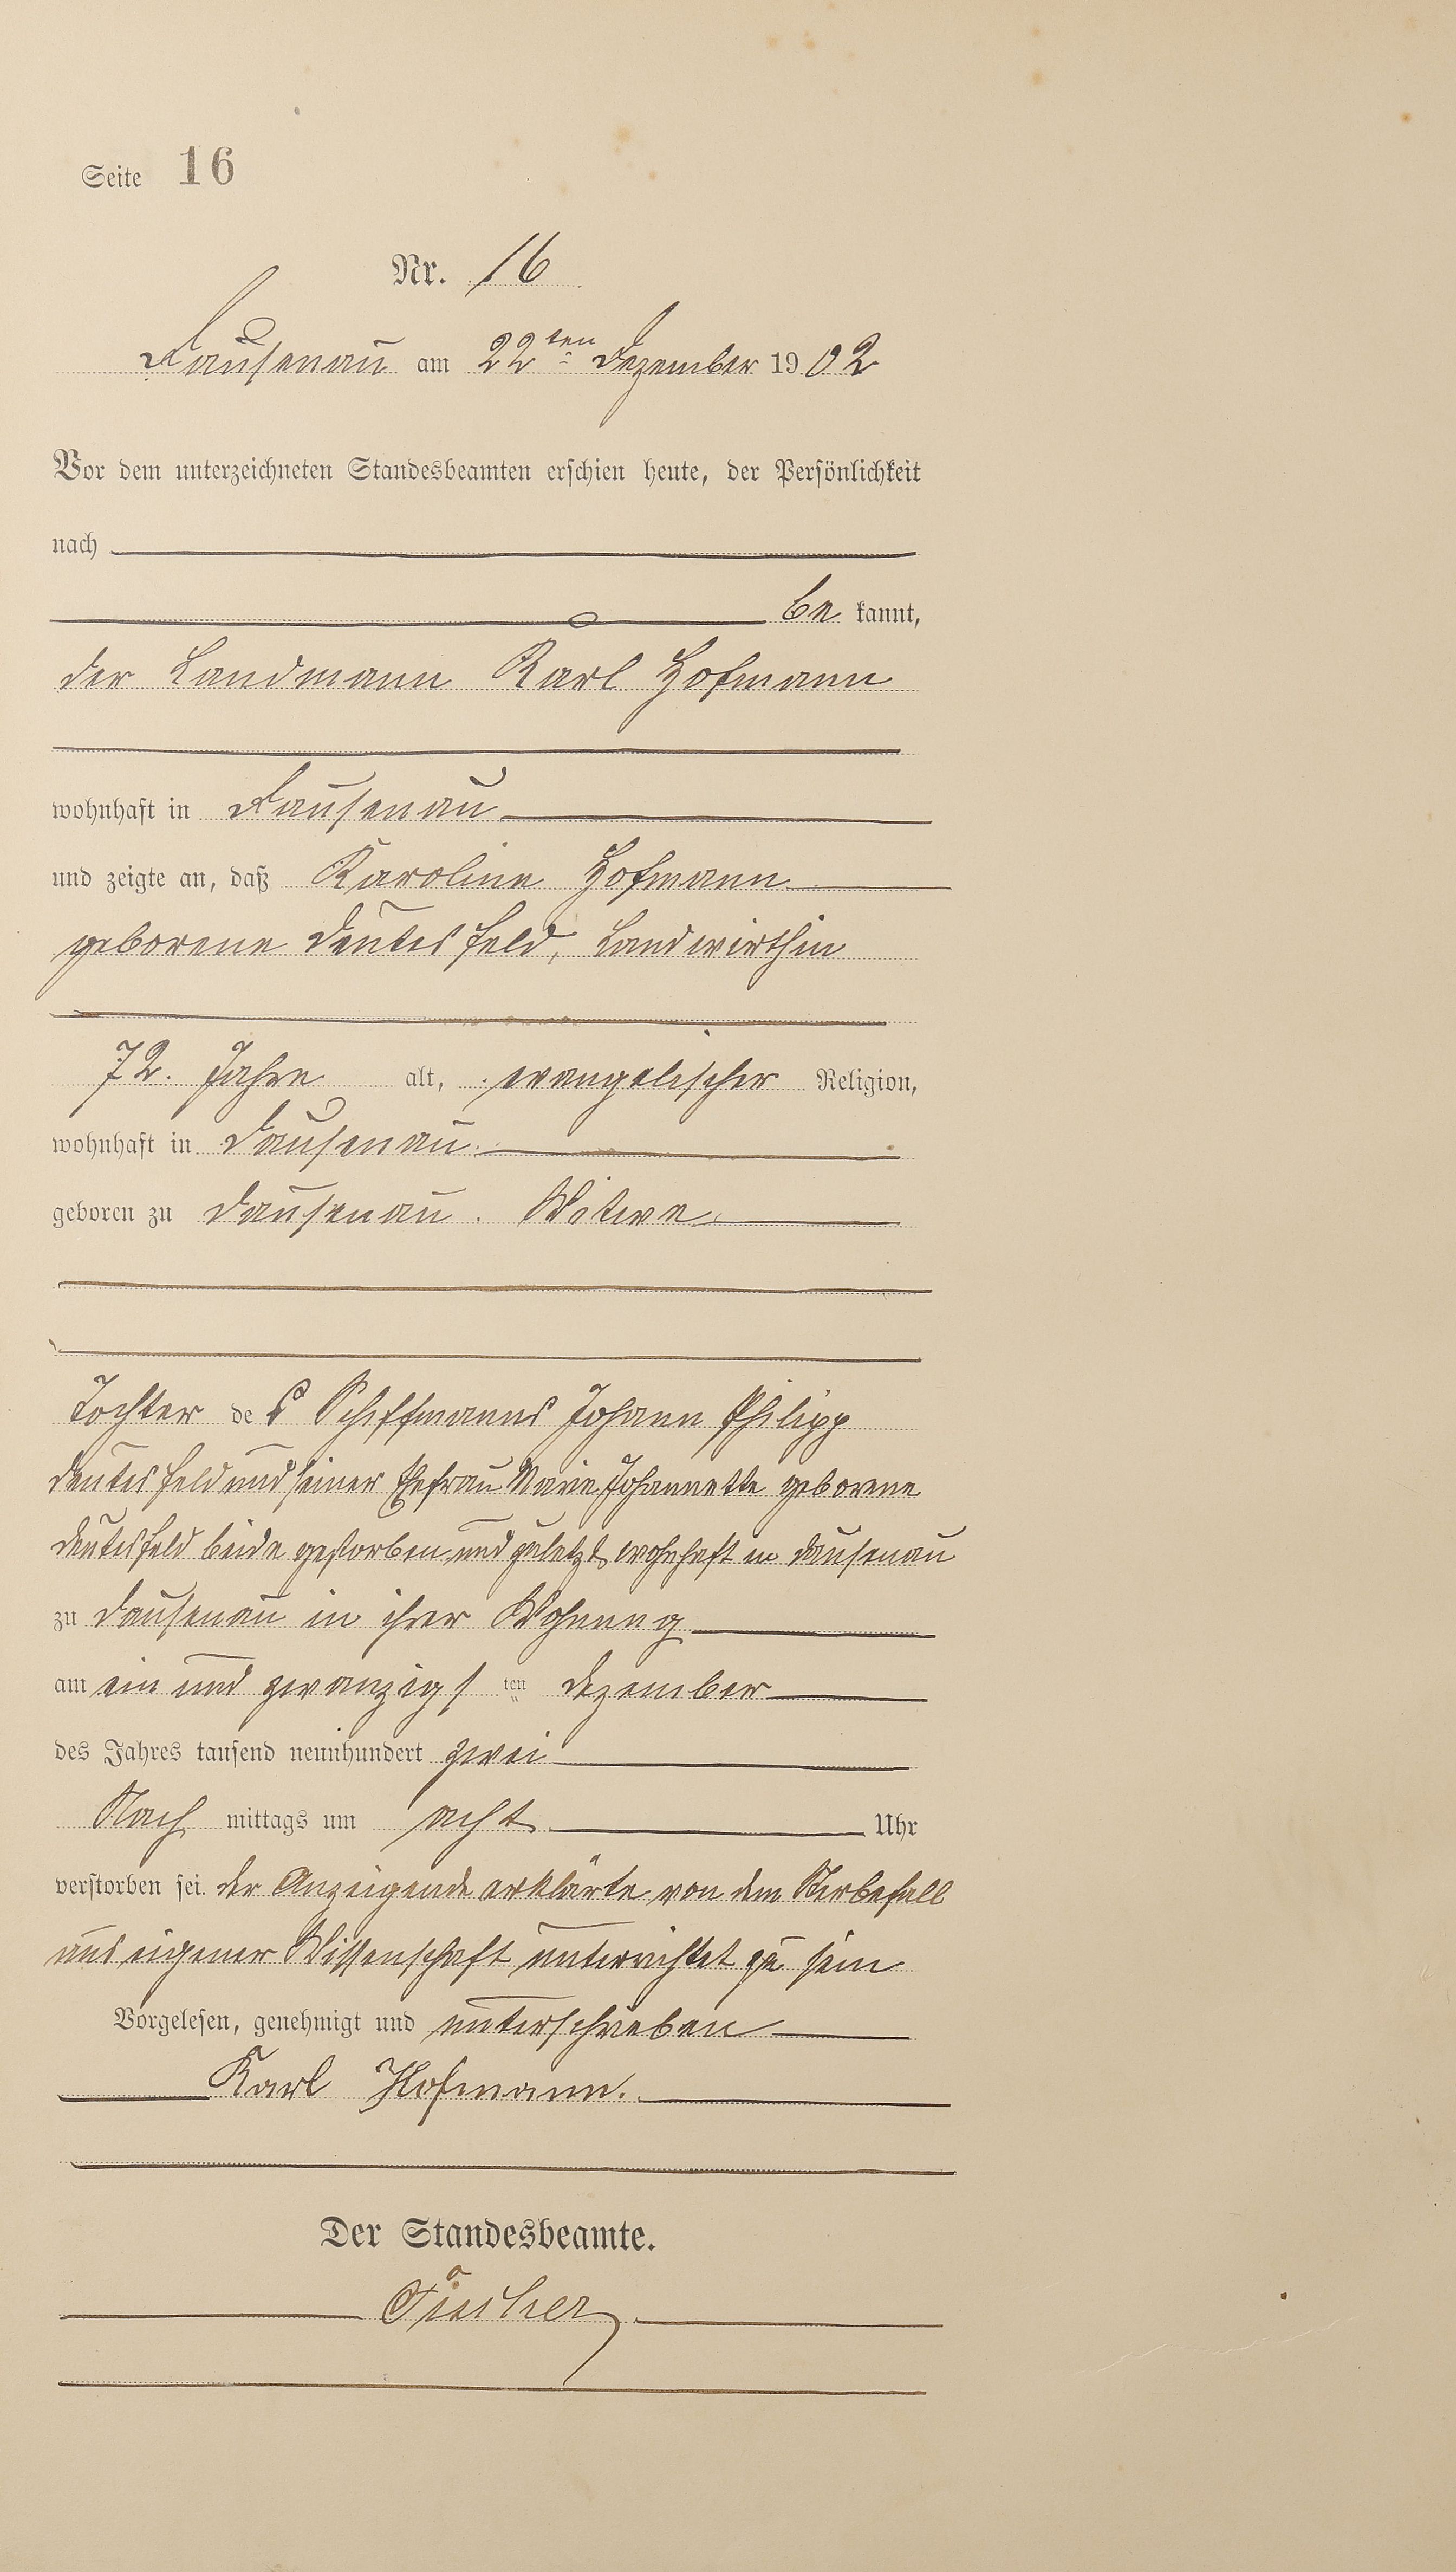 Seite 16
Nr. 16
Dausenau am 22ten Dezember 1902
Vor dem unterzeichneten Standesbeamten erschien heute, der Persönlichkeit
nach
be kannt,
der Landmann Karl Hofmann
wohnhaft in Dausenau
und zeigte an, daß Karoline Hofmann
geborene Deutesfeld, Landwirthin
72. Jahre alt, evangelischer Religion,
wohnhaft in Dausenau
geboren zu Dausenau. Witwe
Tochter des Schiffmanns Johann Philipp
Deutesfeld und seiner Ehefrau Marie Johannette geborene
Deutesfeld beide gestorben und zuletzt wohnhaft in Dausenau
zu Dausenau in ihrer Wohnung
am ein und zwanzigsten Dezember
des Jahres tausend neunhundert zwei
Nach mittags um acht Uhr
verstorben sei. der Anzeigende erklärte von dem Sterbefall
aus eigener Wissenschaft unterrichtet zu sein
Vorgelesen, genehmigt und unterschrieben
Karl Hofmann.
Der Standesbeamte.